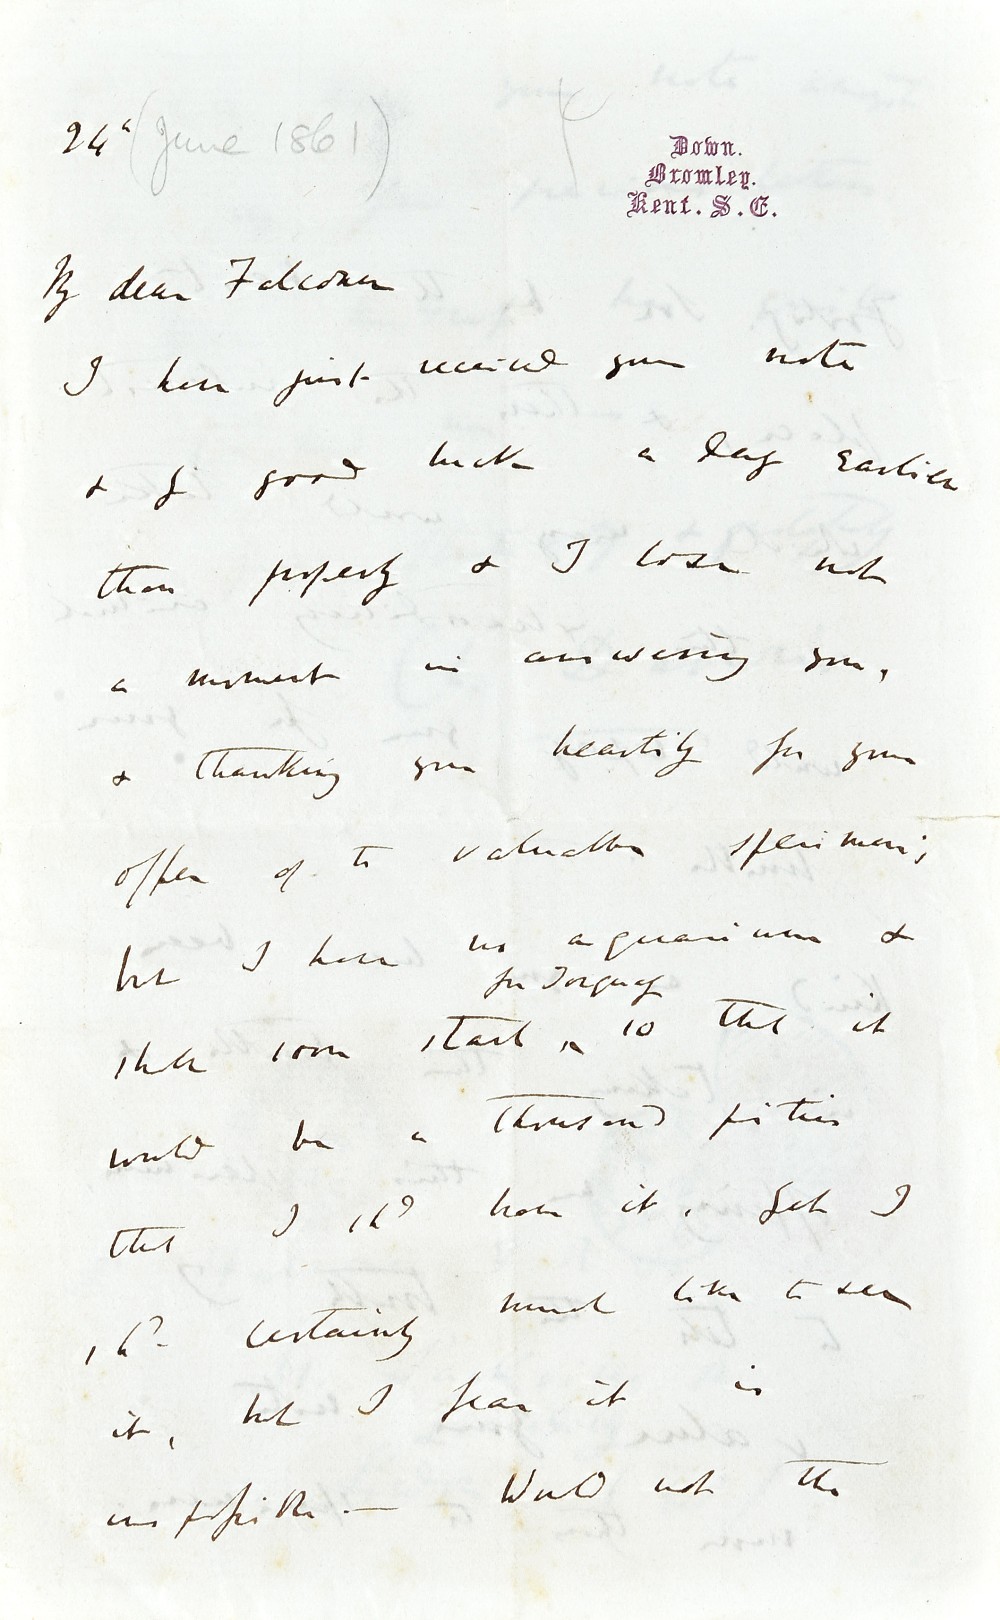 24th (June 1861)
Down.
Bromley.
Kent. S.E.
My dear Falconer
I have just received your note
& by good luck a day earlier
than properly & I lose not
a moment in answering you,
& thanking you heartily for your
offer of the valuable specimen;
but I have no aquarium &
for Torquay
shall soon start ^ so that it
would be a thousand pities
that I shd have it. Yet I
shd. certainly much like to see
it, but I fear it is
impossible. — Would not the